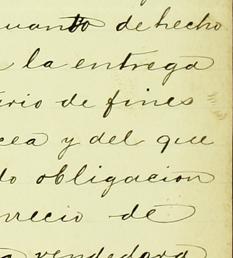 cuanto de hecho
la entrega
ario de fines
cea y del que
do obligacion
precio de
a vendedora